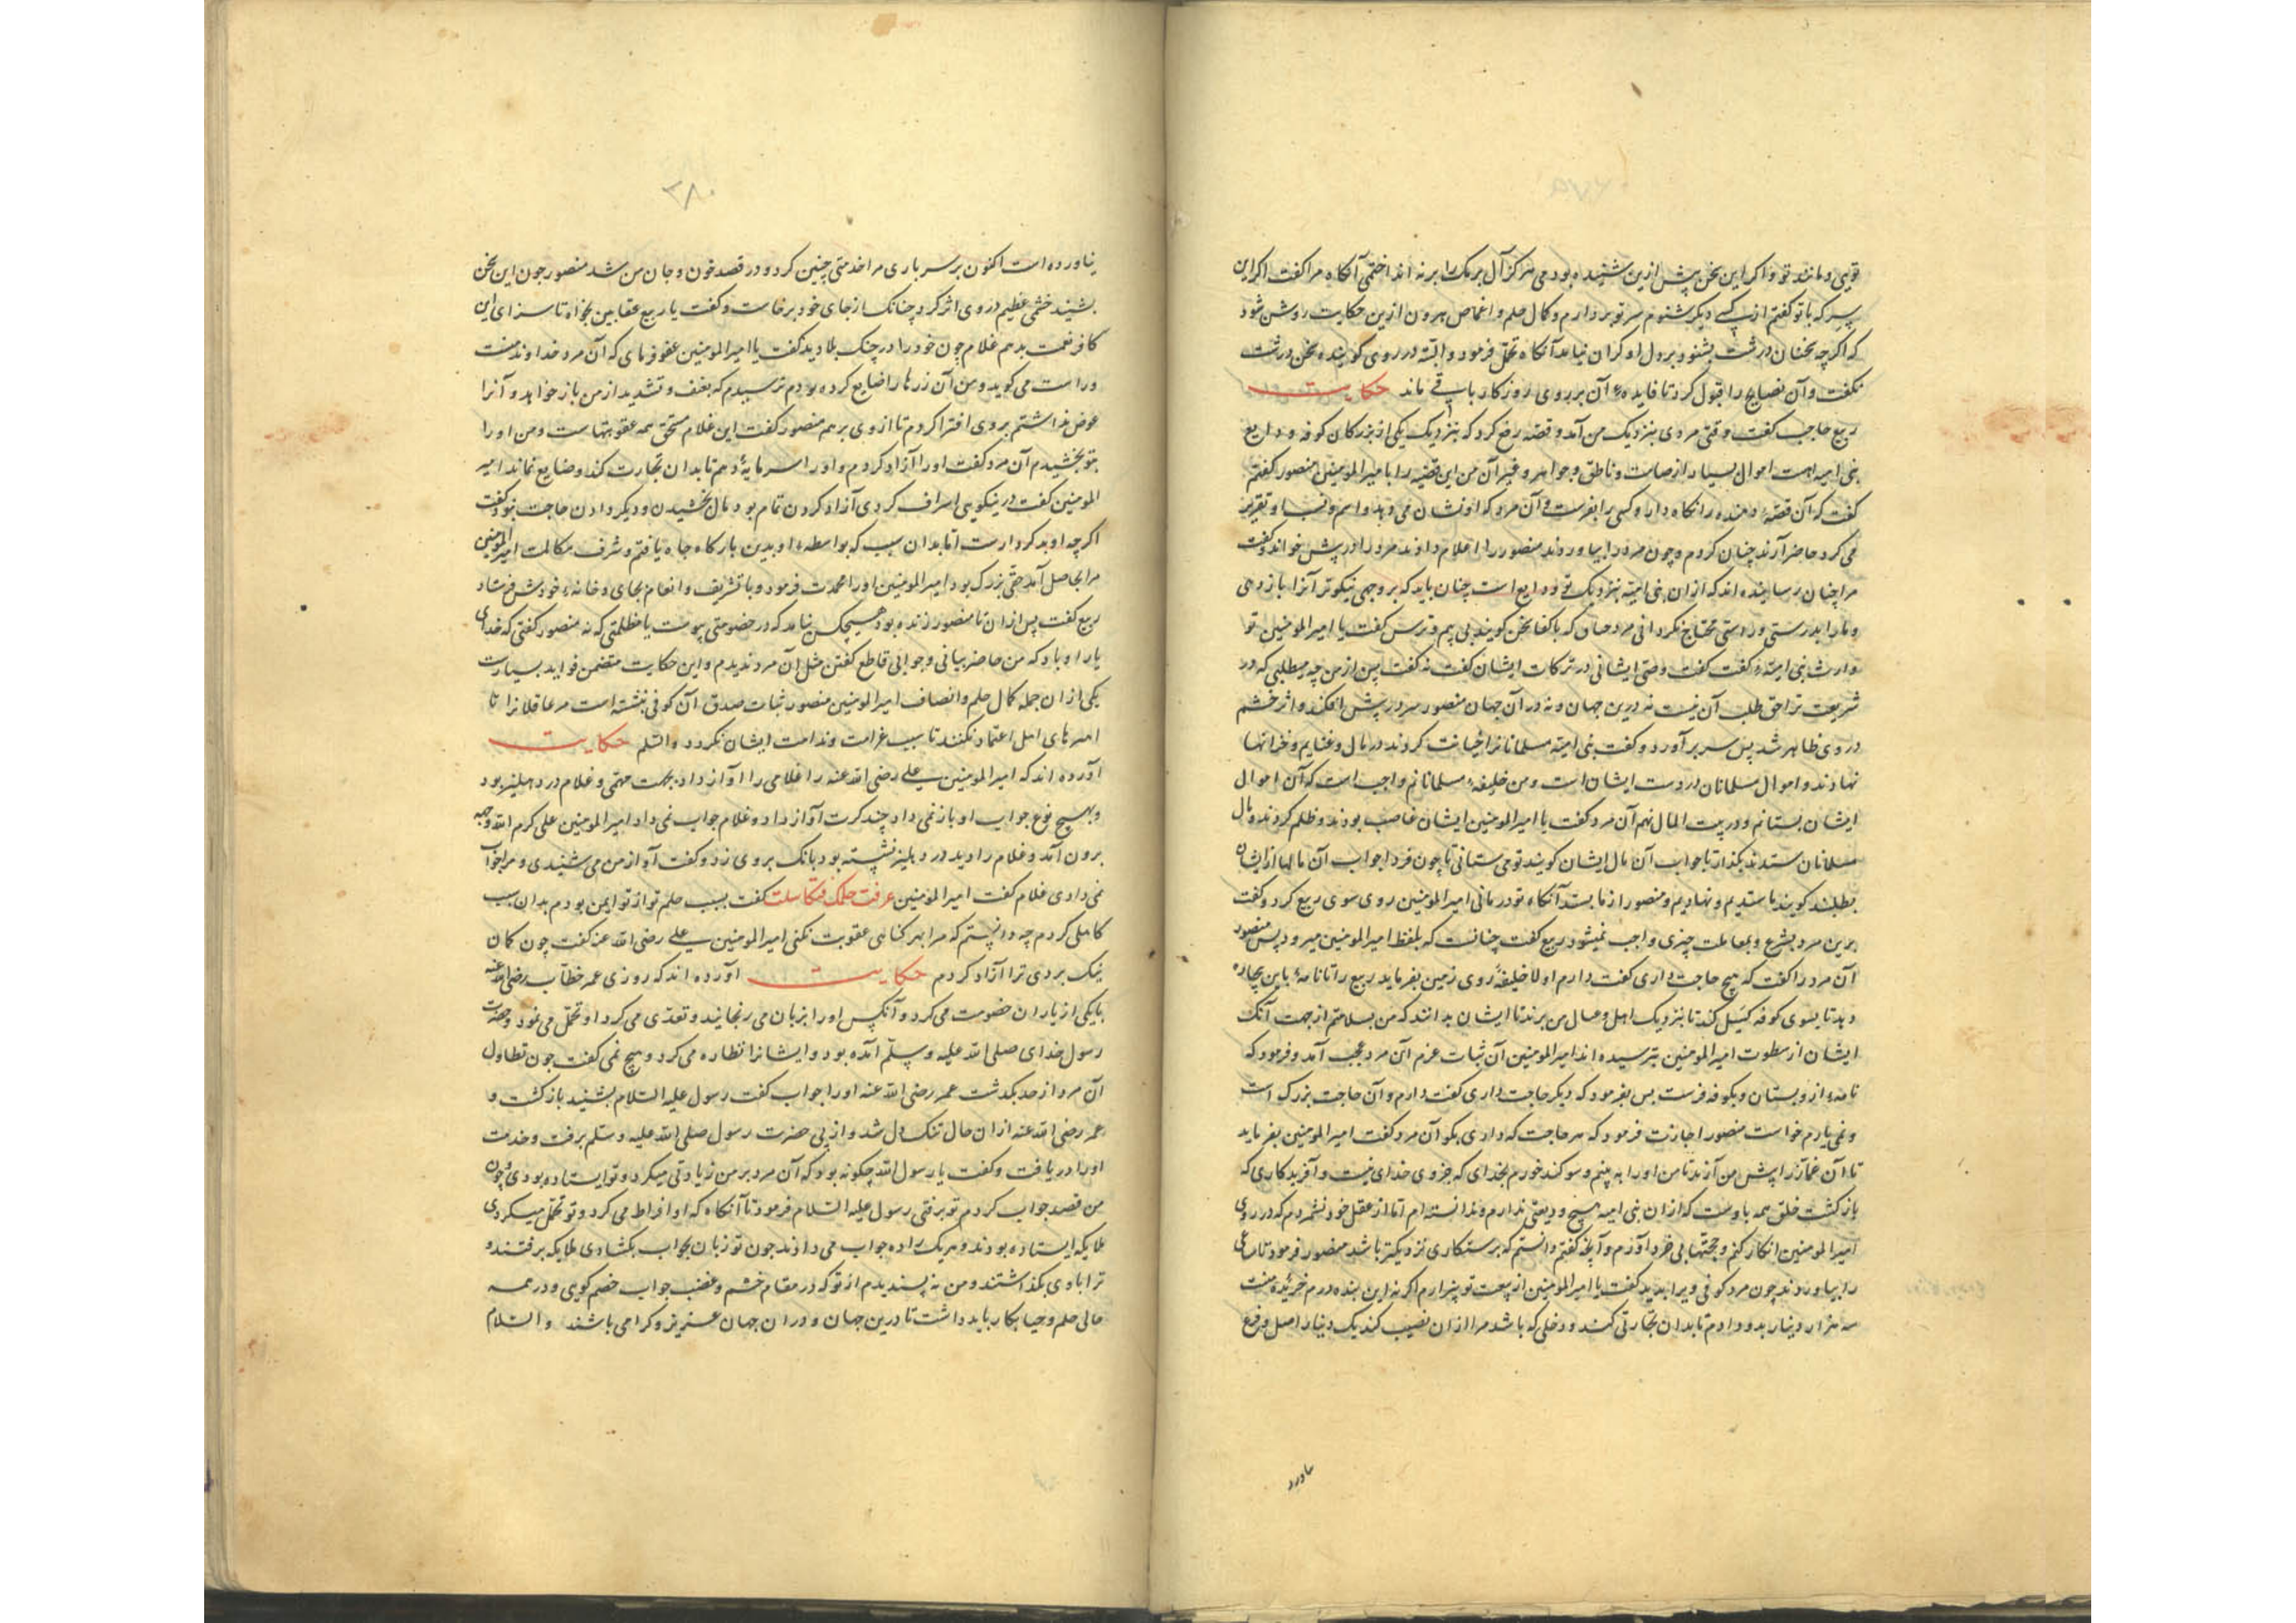 تویی و مانند تو و اگر این سخن پیش ازین شنیده بودمی هرگز آل برمک را برنه انداختمی آنگاه مرا گفت اگر این
سر که با تو گفتم از کسی دیگر شنوم سر تو بردارم و کمال حلم و اغماض هرون ازین حکایت روشن شود
که اگرچه سخنان درشت بشنود و بر دل او گران نیاید آنگاه تحمل فرمود و البته در روی گوینده سخن درشت
نگفت و آن نصایح را قبول کرد تا فایدهء آن بر روی روزگار باقی ماند حکایت
ربیع حاجب گفت وقتی مردی بنزدیک من آمد و قصه رفع کرد که بنزدیک یکی از بزرگان کوفه ودایع
بنی امیه است اموال بسیار از صامت و ناطق و جواهر و غیر آن من این قصه را با امیر المومنین منصور گفتم
گفت که آن قصه دهنده را نگاه دار و کسی را بفرست و آن مرد که او نشان می دهد و اسم و نسب او تقریر
می کرد حاضر آرند چنان کردم و چون مرد را بیاوردند منصور را اعلام دادند مرد را در پیش خواند و گفت
مرا چنان رسانیده اند که از ان بنی امیه بنزدیک تو ودایع است چنان باید که بر وجهی نیکوتر آنرا باز دهی
و ما را بدرستی و راستی محتاج نگردانی مرد چنان که اکفا سخن گویند بی بیم و ترس گفت یا امیر المومنین تو
وارث بنی امیهء گفت نه گفت وصی ایشانی در ترکات ایشان گفت نه گفت پس از من چه میطلبی که در
شریعت ترا حق طلب آن نیست نه درین جهان و نه در آن جهان منصور سر در پیش افکند و اثر خشم
در وی ظاهر شد پس سر بر آورد و گفت بنی امیه مسلمانانرا خیانت کردند در مال و غنایم و خزانها
نهادند و اموال مسلمانان در دست ایشان است و من خلیفهء مسلمانانم واجب است که آن اموال
ایشان بستانم و در بیت المال نهم آن مرد گفت یا امیر المومنین ایشان غاصب بودند و ظلم کردند و مال
مسلمانان ستدند بگذار تا جواب آن مال ایشان گویند تو می ستانی تا چون فردا جواب آن مالها از ایشان
بطلبند گویند ما ستدیم و نهادیم و منصور از ما بستد آنگاه تو درمانی امیر المومنین روی سوی ربیع کرد و گفت
برین مرد بشرع و بمعاملت چیزی واجب نمیشود ربیع گفت چنانست که بلفظ امیر المومنین میرود پس منصور
آن مرد را گفت که هیچ حاجت داری گفت دارم اولا خلیفهٔ روی زمین بفرماید ربیع را تا نامهٔ باین بیچاره
دهد تا بسوی کوفه گسیل کند تا بنزدیک اهل و عیال من برند تا ایشان بدانند که من بسلامتم از جهت آنک
ایشان از سطوت امیر المومنین بترسیده اند امیر المومنین آن ثبات عزم آن مرد عجب آمد و فرمود که
نامهء از و بستان و بکوفه فرست پس بفرمود که دیگر حاجت داری گفت دارم و آن حاجت بزرگ است
و نمی یارم خواست منصور اجازت فرمود که هر حاجت که داری بگو آن مرد گفت امیر المومنین بفرماید
تا آن غماز را پیش من آرند تا من او را به بینم و سوگند خورم بخدای که جز وی خدای نیست و آفریدگاری که
بازگشت خلق همه باوست که از ان بنی امیه هیچ ودیعتی ندارم و ندانسته ام اما از عقل خود نشمردم که در روی
امیر المومنین انکار کنم و حجتها بی خرد آورم و آنچه گفتم دانستم که برستگاری نزدیکتر باشد منصور فرمود تا ساعی
را بیاوردند چون مرد کوفی ویرا بدید گفت یا امیر المومنین از بیعت تو بیزارم اگر نه این بنده درم خریدهٔ منست
سه هزار دینار بدو دادم تا بدان تجارتی کند و دخلی که باشد مرا از ان نصیب کند یک دینار اصل و فرع
٣٨٠
نیاورده است اکنون بر سر باری مرا خدمتی چنین کرد و در قصد خون و جان من شد منصور چون این سخن
بشنید خشمی عظیم در وی اثر کرد چنانک از جای خود برخاست و گفت یا ربیع عقابین بخواه تا سزای این
کافر نعمت بدهم غلام چون خود را در چنگ بلا دید گفت یا امیر المومنین عفو فرمای که آن مرد خداوند منست
و راست می گوید و من آن زرها را ضایع کرده بودم ترسیدم که بعنف و تشدید از من باز خواهد و آنرا
عوض نداشتم بر وی افترا کردم تا از وی برهم منصور گفت این غلام مستحق همه عقوبتهاست و من او را
بتو بخشیدم آن مرد گفت او را آزاد کردم و او را سرمایهٔ دهم تا بدان تجارت کند و ضایع نماند امیر
المومنین گفت در نیکویی اسراف کردی آزاد کردن تمام بود مال بخشیدن و دیگر دادن حاجت نبود گفت
اگرچه او بد کردارست اما بدان سبب که بواسطهء او بدین بارگاه جاه یافتم و شرف مکالمت امیر المومنین
مرا بحاصل آمد حقی بزرگ بود امیر المومنین او را محمدت فرمود و با تشریف و انعام بجای و خانهء خودش فرستاد
ربیع گفت پس از ان تا منصور زنده بود هیچکس نیامد که در خصومتی پیوست یا مظلمتی که نه منصور گفتی که خدای
یار او باد که من حاضر بیانی و جوابی قاطع گفتن مثل آن مرد ندیدم و این حکایت متضمن فواید بسیارست
یکی از ان جمله کمال حلم و انصاف امیر المومنین منصور ثبات صدق آن کوفی نبشته است مر عاقلانرا تا
امرهای اهل اعتماد نکنند تا سبب غرامت و ندامت ایشان نگردد والسلم حکایت
آورده اند که امیر المومنین علی رضی الله عنه را غلامی را آواز داد بجهت مهمی و غلام در دهلیز بود
و بهیچ نوع جواب او باز نمی داد چند کرت آواز داد و غلام جواب نمی داد امیر المومنین علی کرم الله وجهه
برون آمد و غلام را دید در دهلیز نشسته بود بانگ بر وی زد و گفت آواز من می شنیدی و مرا جواب
نمی دادی غلام گفت امیر المومنین عرفت حلمک فتکاسلت گفت بسبب حلم تو از تو ایمن بودم بدان سبب
کاهلی کردم چه دانستم که مرا بهر گناهی عقوبت نکنی امیر المومنین علی رضی الله عنه گفت چون گمان
نیک بردی ترا آزاد کردم حکایت آورده اند که روزی عمر خطاب رضی الله عنه
با یکی از یاران خصومت می کرد و آنکس او را بزبان می رنجانید و تعدی می کرد او تحمل می نمود و حضرت
رسول خدای صلی الله علیه و سلم آمده بود و ایشانرا نظاره می کرد و هیچ نمی گفت چون تطاول
آن مرد از حد بگذشت عمر رضی الله عنه او را جواب گفت رسول علیه السلام بشنید بازگشت و
عمر رضی الله عنه از ان حال تنگ دل شد و از پی حضرت رسول صلی الله علیه و سلم برفت و خدمت
او را دریافت و گفت یا رسول الله چگونه بود که آن مرد بر من زیادتی میکرد و تو ایستاده بودی و چون
من قصد جواب کردم تو برفتی رسول علیه السلام فرمود تا آنگاه که او افراط می کرد و تو تحمل میکردی
ملایکه ایستاده بودند و هر یک راده جواب می دادند چون تو زبان بجواب بگشادی ملایکه برفتند و
ترا با وی بگذاشتند و من نه پسندیدم از تو که در مقام خشم و غضب جواب خصم گویی و در همه
حالی حلم و حیا بکار باید داشت تا درین جهان و در ان جهان عزیز و گرامی باشند والسلام